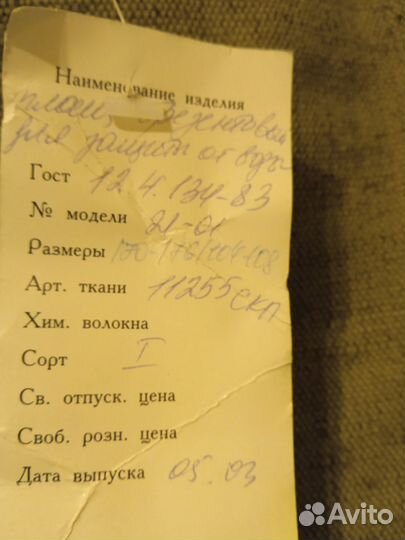 Наименование изделия
плащ
для защиты от воды
Гост 12.4.134-83
№ модели 21-01
Размеры 170-176/104-108
Арт. ткани 11255 СКП
Хим. волокна
Сорт I
Св. отпуск. цена
Своб. розн. цена
Дата выпуска 05.03
Avito